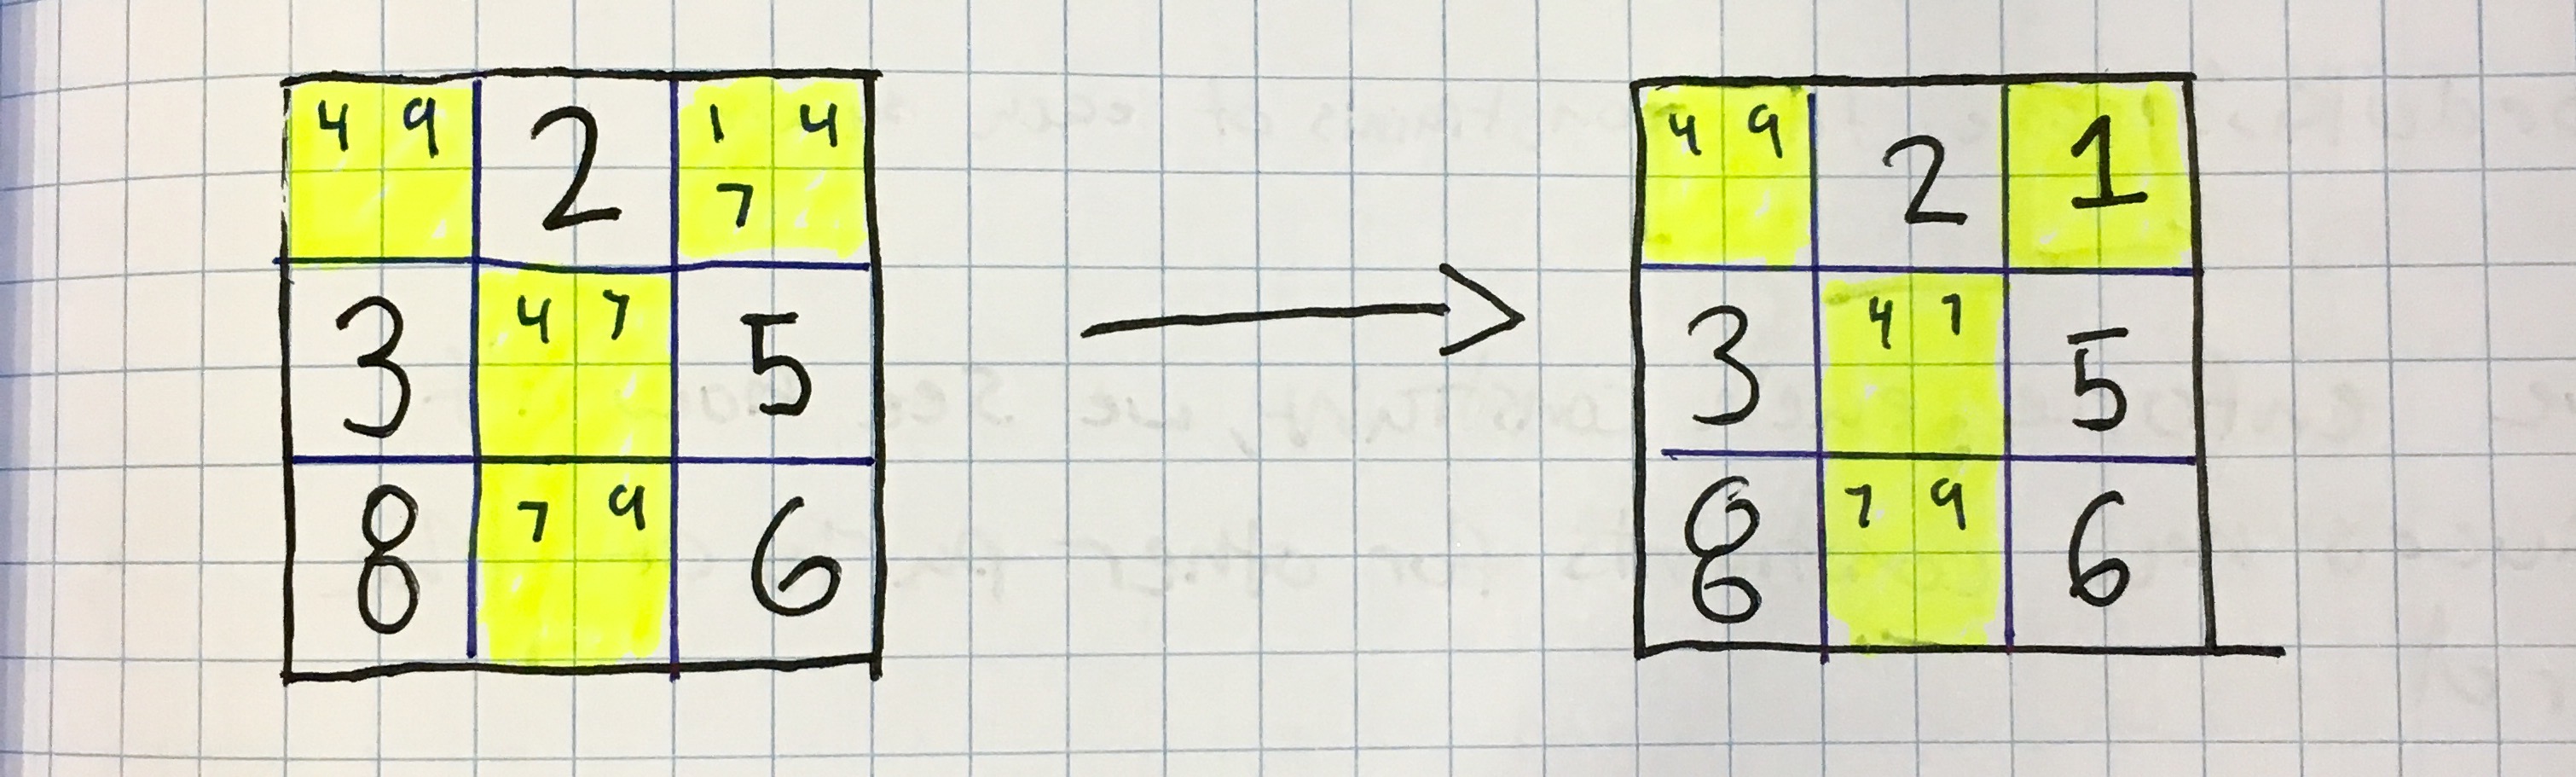 4 9 2 1 4
7
3 4 7 5
8 7 9 6
4 9 2 1
3 4 7 5
8 7 9 6